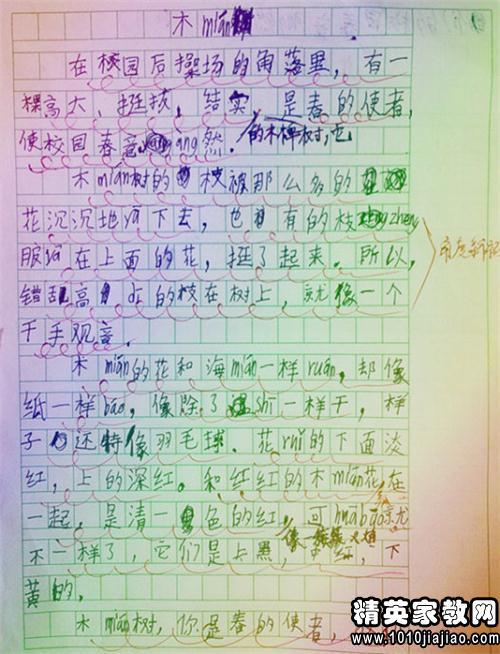 木mián
在校园后操场的角落里,有一
棵高大、挺拔、结实的木棉树,它是春的使者,
使校园春意 àng然.
木mián树的枝被那么多的
花沉沉地 下去,也有的枝 zhēng
服 在上面的花,挺了起来.所以,
错乱高 的枝在树上,就像一个
千手观音.
木mián的花和海mián一样ruǎn,却像
纸一样báo,像除了 shī一样干,样
子还特像羽毛球.花ruǐ的下面淡
红,上的深红。和红红的木mián花在
一起,是清一色的红,像 火焰 可huā bāo就
不一样了,它们是上黑, 红,下
黄的.
木mián树,你是春的使者,
精英家教网
www.1010jiajiao.com